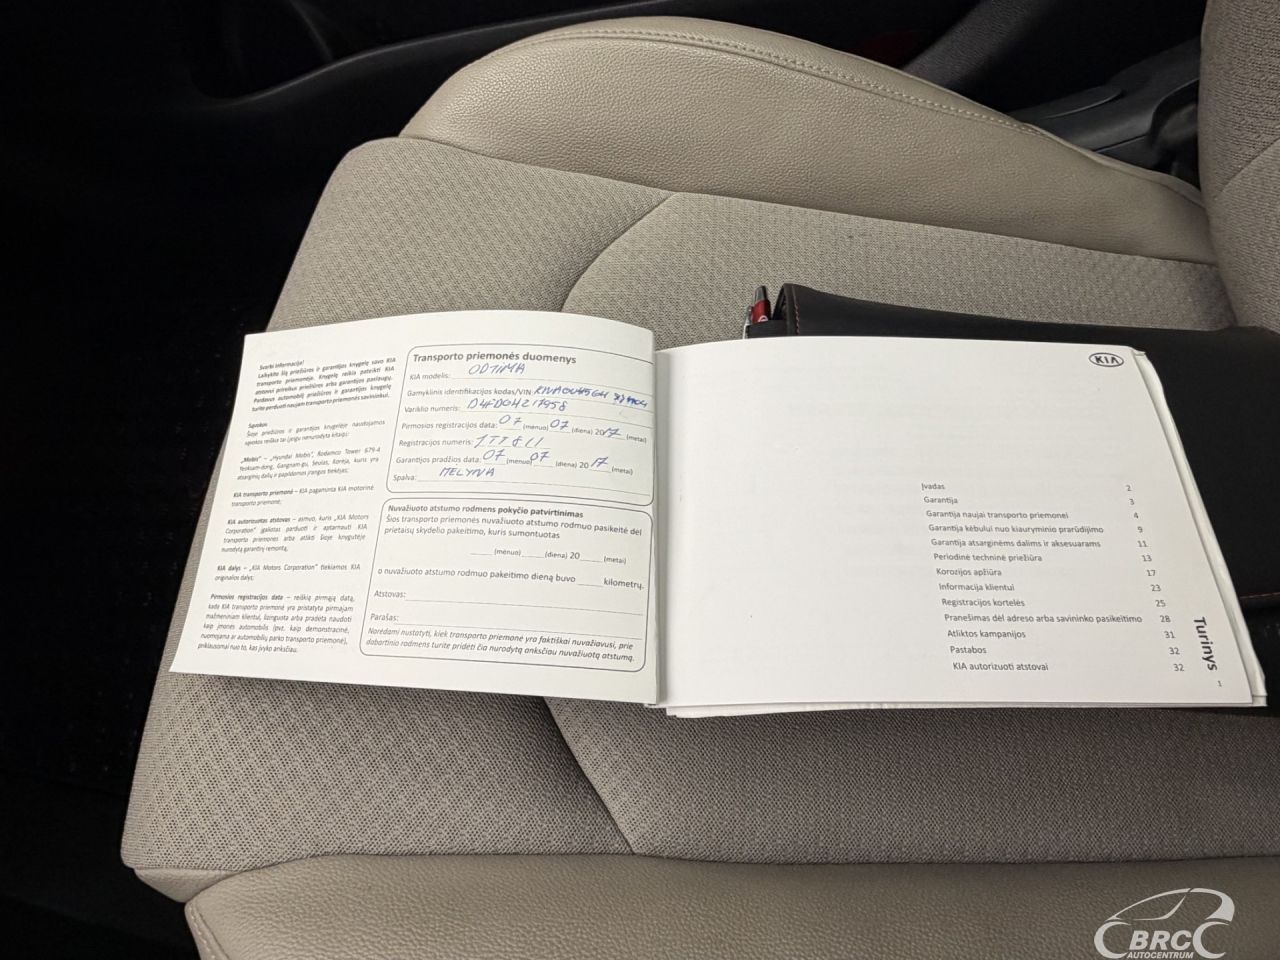 Svarbi informacija!
Laikykite šią priežiūros ir garantijos knygelę savo KIA
transporto priemonėje. Knygelę reikia pateikti KIA
atstovui prireikus priežiūros arba garantijos paslaugų.
Perdavus automobilį priežiūros ir garantijos knygelę
turite perduoti naujam transporto priemonės savininkui.
Sąvokos
Šioje priežiūros ir garantijos knygelėje naudojamos
sąvokos reiškia tai (jeigu nenurodyta kitaip):
„Mobis" – „Hyundai Mobis", Rodamco Tower 679-4
Yeoksam-dong, Gangnam-gu, Seulas, Korėja, kuris yra
atsarginių dalių ir papildomos įrangos tiekėjas;
KIA transporto priemonė – KIA pagaminta KIA motorinė
transporto priemonė;
KIA autorizuotas atstovas – asmuo, kuris „KIA Motors
Corporation" įgaliotas parduoti ir aptarnauti KIA
transporto priemones arba atlikti šioje knygutėje
nurodytą garantinį remontą,
KIA dalys – „KIA Motors Corporation" tiekiamos KIA
originalios dalys;
Pirmosios registracijos data – reiškią pirmąją datą,
kada KIA transporto priemonė yra pristatyta pirmajam
mažmeniniam klientui, išnuomota arba pradėta naudoti
kaip įmonės automobilis (pvz. kaip demonstracinė,
nuomojama ar automobilių parko transporto priemonė),
priklausomai nuo to, kas įvyko anksčiau.
Transporto priemonės duomenys
KIA modelis: OPTIMA
Gamyklinis identifikacijos kodas/VIN
Variklio numeris: D4FDGH217958
Pirmosios registracijos data: 07 (mėnuo) 07 (diena) 2017 (metai)
Registracijos numeris:
Garantijos pradžios data: 07 (mėnuo) 07 (diena) 2017 (metai)
Spalva: MELYNA
Nuvažiuoto atstumo rodmens pokyčio patvirtinimas
Šios transporto priemonės nuvažiuoto atstumo rodmuo pasikeitė dėl
prietaisų skydelio pakeitimo, kuris sumontuotas
____ (mėnuo) ____ (diena) 20 ____ (metai)
o nuvažiuoto atstumo rodmuo pakeitimo dieną buvo ____ kilometrų.
Atstovas:
Parašas:
Norėdami nustatyti, kiek transporto priemonė yra faktiškai nuvažiavusi, prie
dabartinio rodmens turite pridėti čia nurodytą anksčiau nuvažiuotą atstumą.
KIA
Įvadas 2
Garantija 3
Garantija naujai transporto priemonei 4
Garantija kėbului nuo kiauryminio prarūdijimo 9
Garantija atsarginėms dalims ir aksesuarams 11
Periodinė techninė priežiūra 13
Korozijos apžiūra 17
Informacija klientui 23
Registracijos kortelės 25
Pranešimas dėl adreso arba savininko pasikeitimo 28
Atliktos kampanijos 31
Pastabos 32
KIA autorizuoti atstovai 32
Turinys
1
BRC
AUTOCENTRUM